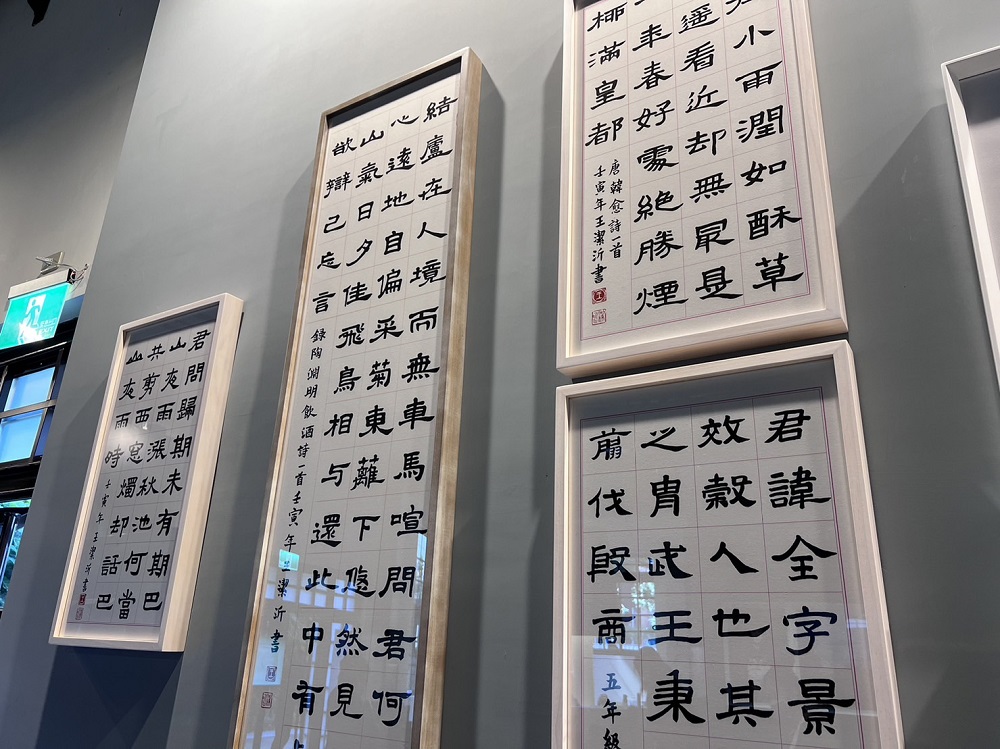 君問歸期未有期巴
山夜雨漲秋池何當
共剪西窓燭却話巴
山夜雨時
壬寅年王潔沂書
結廬在人境而無車馬喧問君何
心遠地自偏采菊東籬下悠然見
山氣日夕佳飛鳥相与還此中有
欲辯己忘言
錄陶淵明飲酒詩一首壬寅年王潔沂書
小雨潤如酥草
遥看近却無最是
年春好處絶勝煙
柳滿皇都
唐韓愈詩一首
壬寅年王潔沂書
君諱全字景
效穀人也其
之冑武王秉
翦伐殷商
五年級